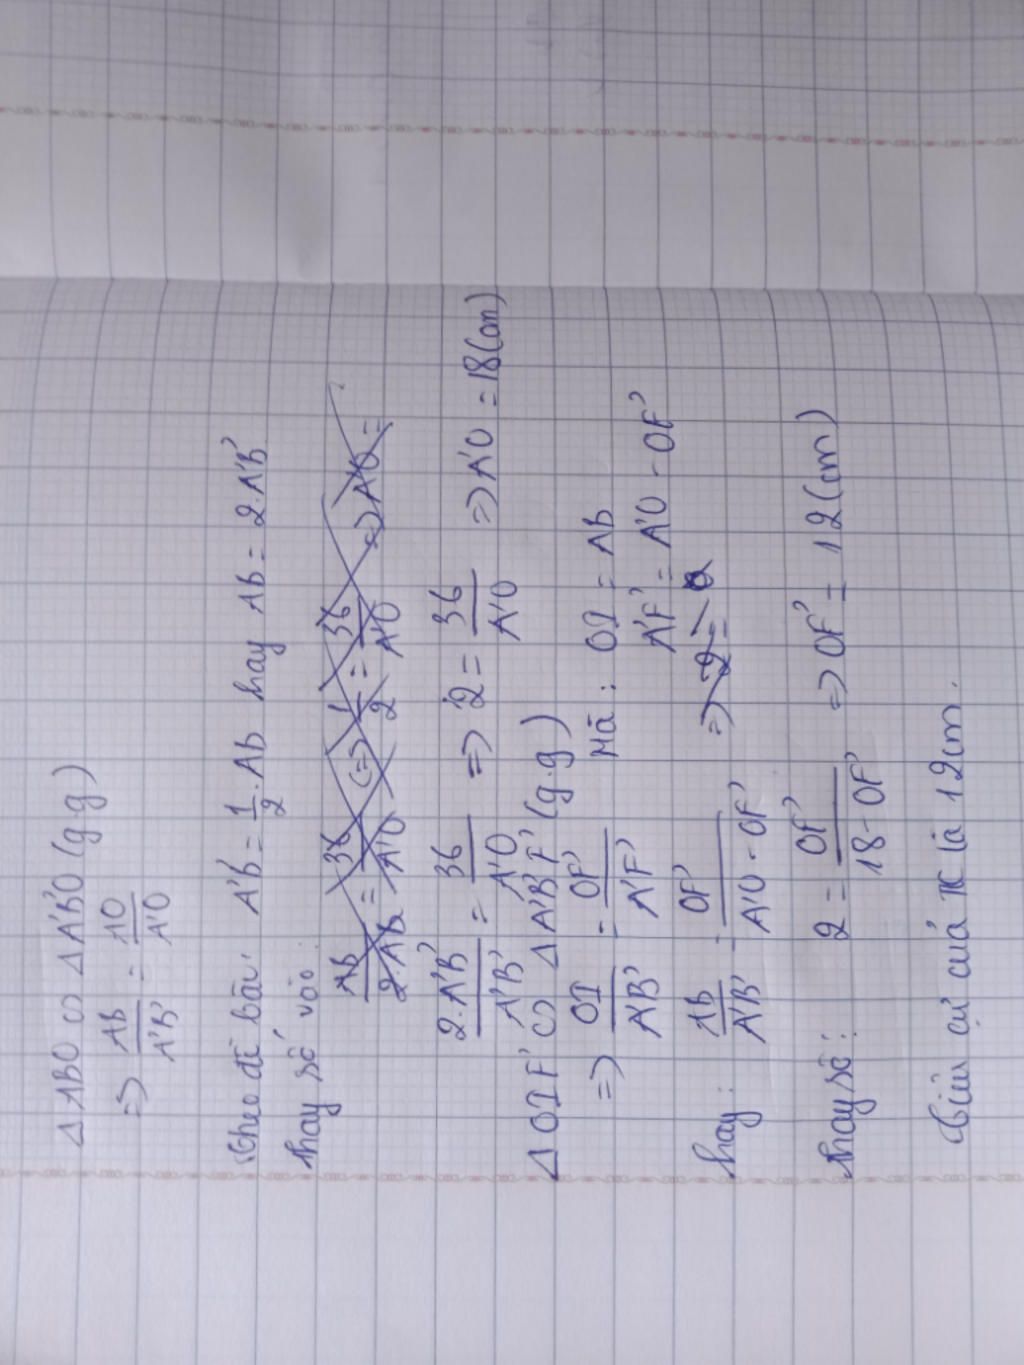 Δ ABO ∽ Δ A'B'O (g.g)
=> AB/A'B' = AO/A'O
Theo đề bài: A'B' = 1/2 . AB hay AB = 2.A'B'
thay số vào:
AB/2.AB = 36/A'O (=) 1/2 = 36/A'O => A'O =
2.A'B'/A'B' = 36/A'O => 2 = 36/A'O => A'O = 18(cm)
Δ OIF' ∽ Δ A'B'F' (g.g)
=> OI/A'B' = OF'/A'F' Mà: OI = AB
A'F' = A'O - OF'
hay: AB/A'B' = OF'/A'O - OF' => 2 =
thay số: 2 = OF'/18 - OF' => OF' = 12(cm)
Tiêu cự của TK là 12cm.